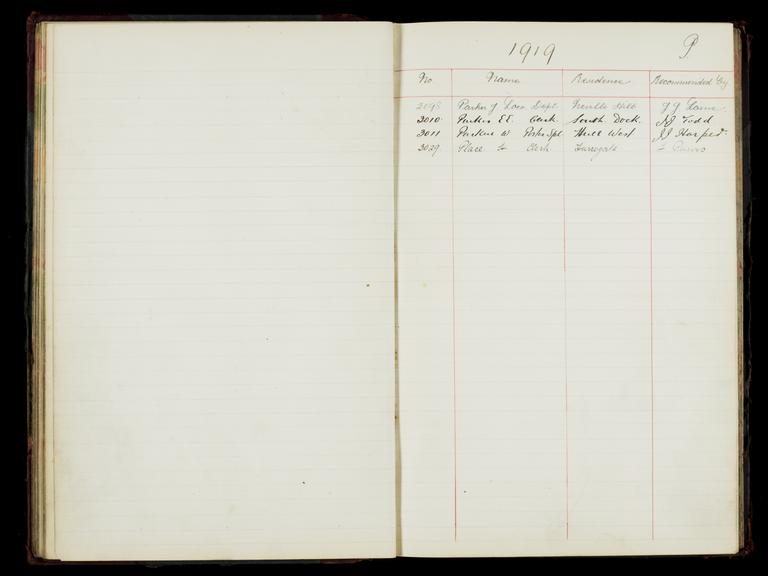 1919 P.
No. Name Residence Recommended By
2098 Parker J Loco Dept. Neville Hill J J
3010 Parkin E E. Clerk South Dock. Todd
3011 W Hull West
3029 Place Clerk Harrogate